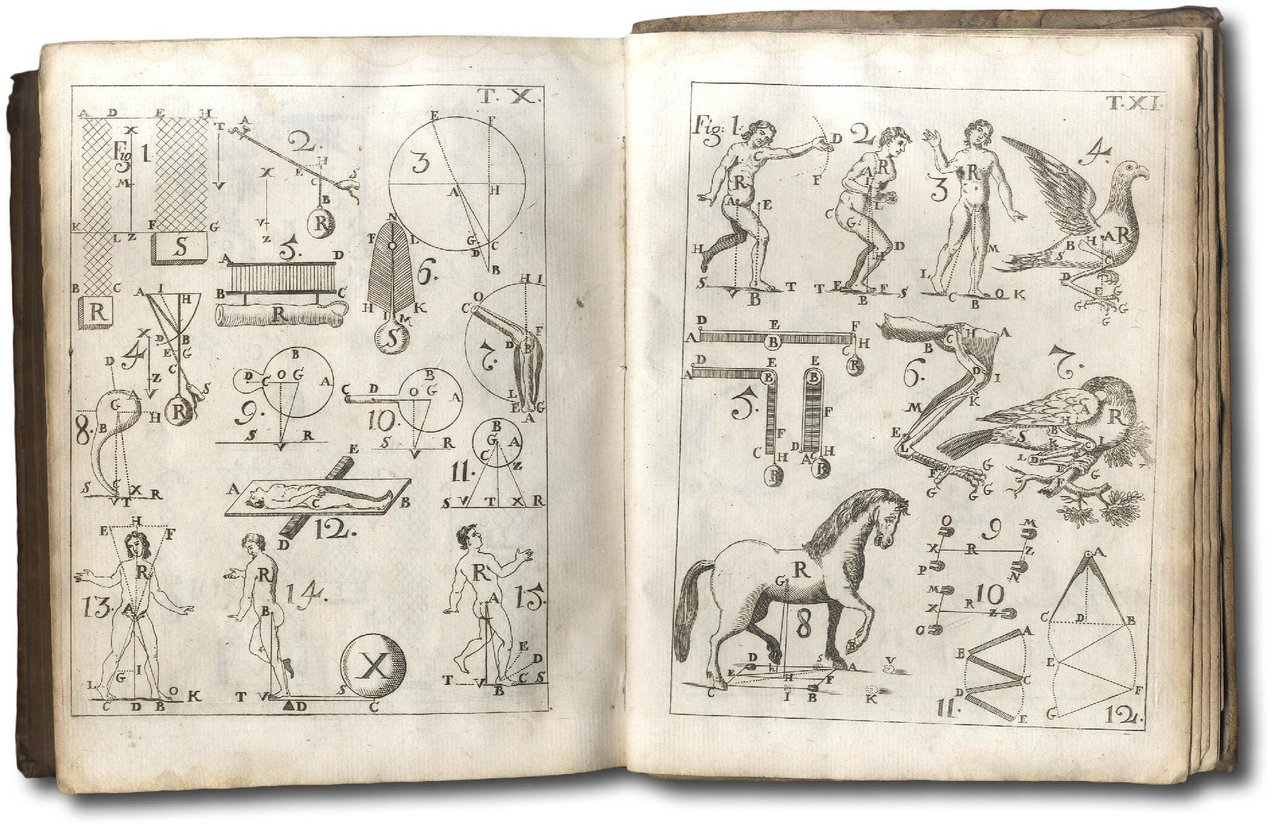 T. X.
A D E H
T A
X
Fig 1.
2.
E F
3
M
X
H
E C S
V
B
A H
K L Z F G
V
Z
R
S
5.
N
F L
6.
G C
D
B
A D
B C
R
H I K
M
S
B C
R
A I H
X
D B
E G
4
C
Z
S
R
H I
O
C
F
D B
7.
L
E G
A
D
G
H
8.
B
S C X R
T
B
D C O G A
9.
S R
B
C D O G A
10.
S R
B
G A
Z
11.
S V T X R
E
A B
C
12.
D
E H F
R
13.
A
G I
L O K
C D B
R
14.
B
X
T V S
D C
R
15.
A
E
D
T V B C S
T. XI.
Fig: 1.
D
F
R
A E
H
S
V B T
2
A R
L
C G
D
T E B F S
R
3
M
L
C B O K
4.
A R
B H
S C
D
E G
G G
G
D E F
A B H
C
R
D E
A B
5.
C H
R
E
B
F
D A H
R
H A
B C
D I
6.
K
M
E
L
F G
G G
7.
A R
B
S K C I
L D
G
R
G
8
D S A B
E H F
C I B K
V
O 9 M
X R Z
P N
M 10
X R Z
O
A
B
C
D
11.
E
A
C D B
E
F
G
12.